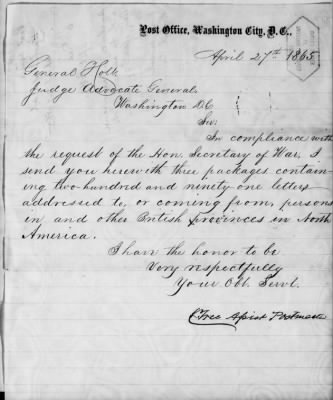 Post Office, Washington City, D.C.,
April 27th 1865
General Holt
Judge Advocate General,
Washington D.C
Sir
In compliance with
the request of the Hon. Secretary of War, I
send you herewith three packages contain-
ing two hundred and ninety one letters
addressed to, or coming from, persons
in and other British Provinces in North
America.
I have the honor to be
Very respectfully
Your Obt. Servt.
Asist Postmaster